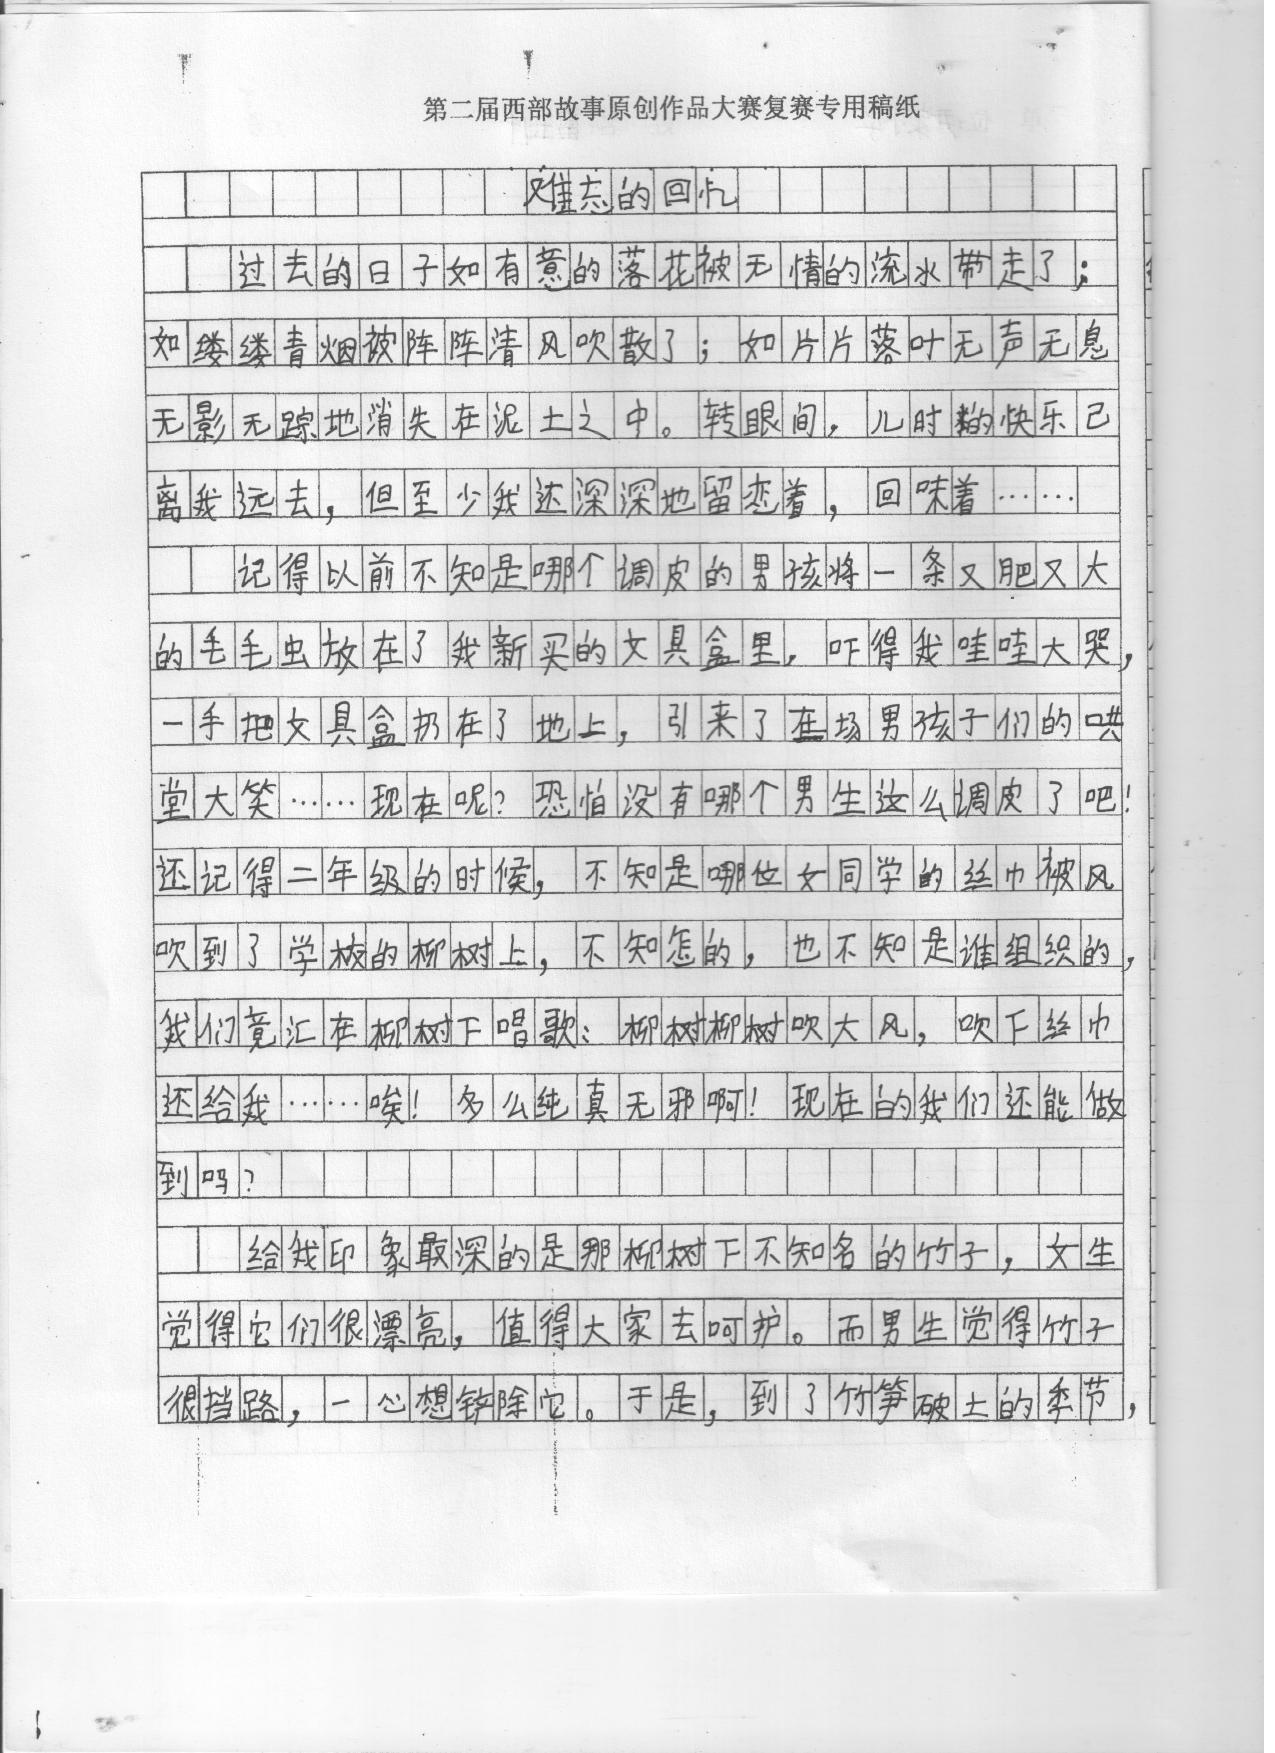 第二届西部故事原创作品大赛复赛专用稿纸
难忘的回忆
过去的日子如有意的落花被无情的流水带走了；
如缕缕青烟被阵阵清风吹散了；如片片落叶无声无息
无影无踪地消失在泥土之中。转眼间，儿时的快乐已
离我远去，但至少我还深深地留恋着，回味着……
记得以前不知是哪个调皮的男孩将一条又肥又大
的毛毛虫放在了我新买的文具盒里，吓得我哇哇大哭，
一手把文具盒扔在了地上，引来了在场男孩子们的哄
堂大笑……现在呢？恐怕没有哪个男生这么调皮了吧！
还记得二年级的时候，不知是哪位女同学的丝巾被风
吹到了学校的柳树上，不知怎的，也不知是谁组织的，
我们竟汇在柳树下唱歌：柳树柳树吹大风，吹下丝巾
还给我……唉！多么纯真无邪啊！现在的我们还能做
到吗？
给我印象最深的是那柳树下不知名的竹子，女生
觉得它们很漂亮，值得大家去呵护。而男生觉得竹子
很挡路，一心想铲除它。于是，到了竹笋破土的季节，